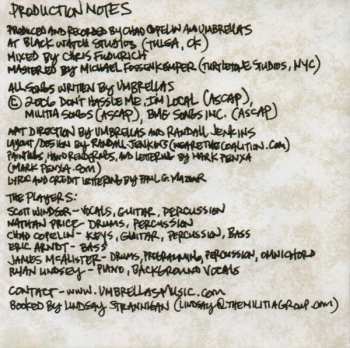 PRODUCTION NOTES
PRODUCED AND RECORDED BY CHAD COPELIN AND UMBRELLAS
AT BLACK WATCH STUDIOS (TULSA, OK)
MIXED BY CHRIS FUDURICH
MASTERED BY MICHAEL FOSSENKEMPER (TURTLETONE STUDIOS, NYC)
ALL SONGS WRITTEN BY UMBRELLAS
© 2006 DON'T HASSLE ME, I'M LOCAL (ASCAP),
MILITIA SONGS (ASCAP), BMG SONGS INC. (ASCAP)
ART DIRECTION BY UMBRELLAS AND RANDALL JENKINS
LAYOUT/DESIGN BY RANDALL JENKINS (WEARETHECOALITION.COM)
PAINTINGS, HAND RENDERINGS, AND LETTERING BY MARK PENXA
(MARK PENXA.COM)
LYRIC AND CREDIT LETTERING BY PAUL G. MAZIAR
THE PLAYERS:
SCOTT WINDSOR - VOCALS, GUITAR, PERCUSSION
NATHAN PRICE - DRUMS, PERCUSSION
CHAD COPELIN - KEYS, GUITAR, PERCUSSION, BASS
ERIC ARNDT - BASS
JAMES MCALISTER - DRUMS, PROGRAMMING, PERCUSSION, OMNICHORD
RYAN LINDSEY - PIANO, BACKGROUND VOCALS
CONTACT - WWW.UMBRELLASMUSIC.COM
BOOKED BY LINDSAY STRANNIGAN (LINDSAY@THEMILITIAGROUP.COM)